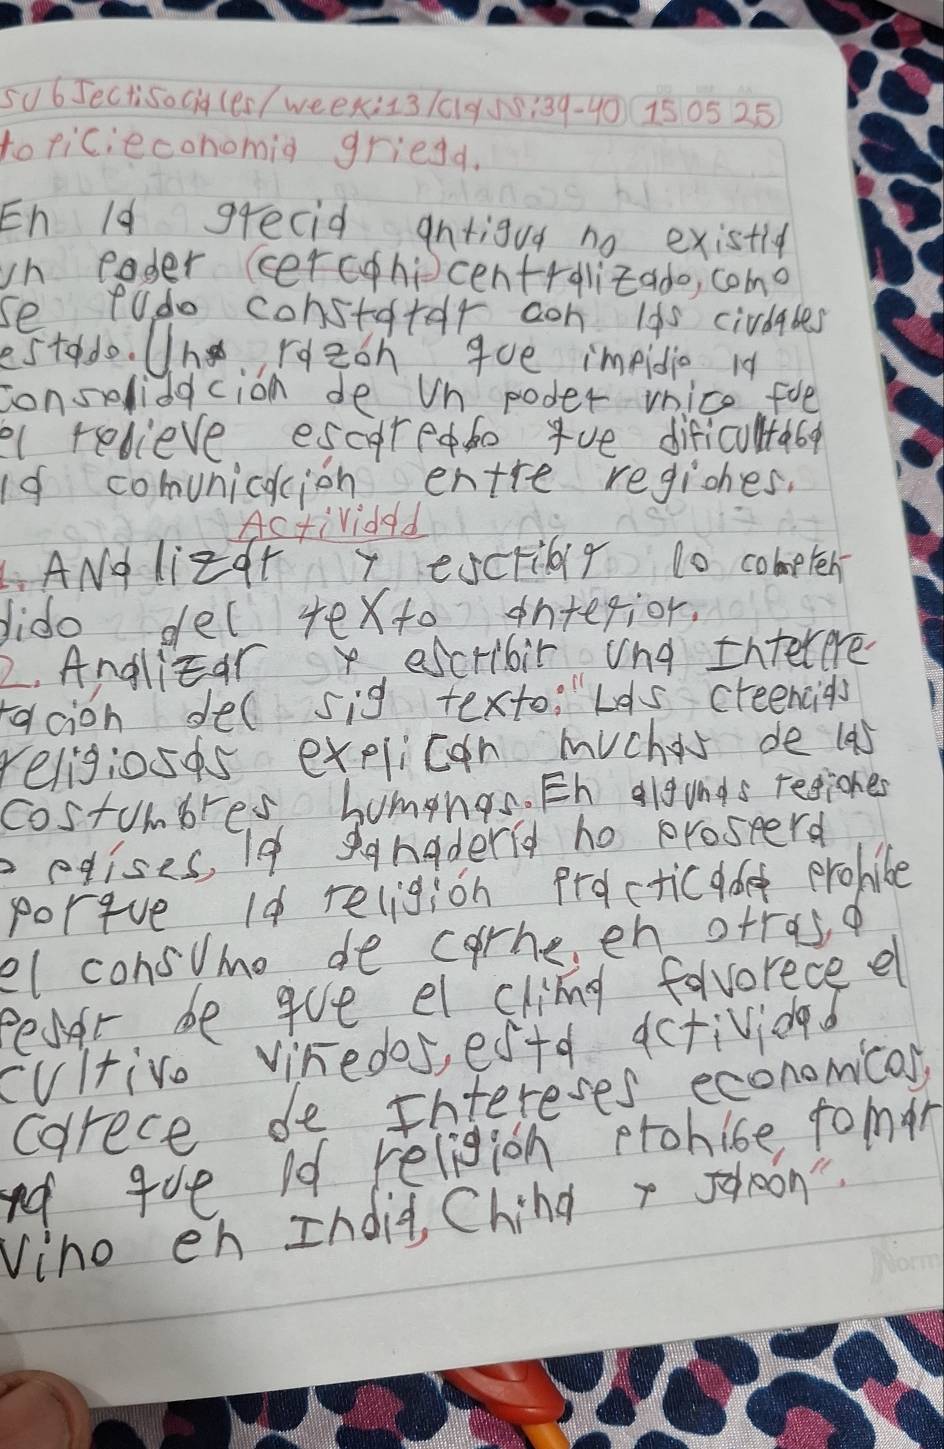 subject: Sociales/week:13/class:39-40 15 05 25
topic: economia griega.
En la grecia antigua no existia
un poder (cercani) centralizado, como
se pudo constatar con las ciudades
estado. Una razón que impidio la
consolidación de un poder unico fue
el relieve escarpado que dificultaba
la comunicación entre regiones.
Actividad
1. ANalizar y escribir lo compren-
dido del texto anterior.
2. Analizar y escribir una Interpre-
tación del sig texto: "Las creencias
religiosas explican muchas de las
costumbres humanas. En algunas regiones
o paises, la ganaderia no prospera
porque la religión practicada prohibe
el consumo de carne, en otras, a
pesar de que el clima favorece el
cultivo viñedos, esta actividad
carece de Intereses economicos,
ya que la religión prohibe tomar
vino en India, China y Japón".
Norm